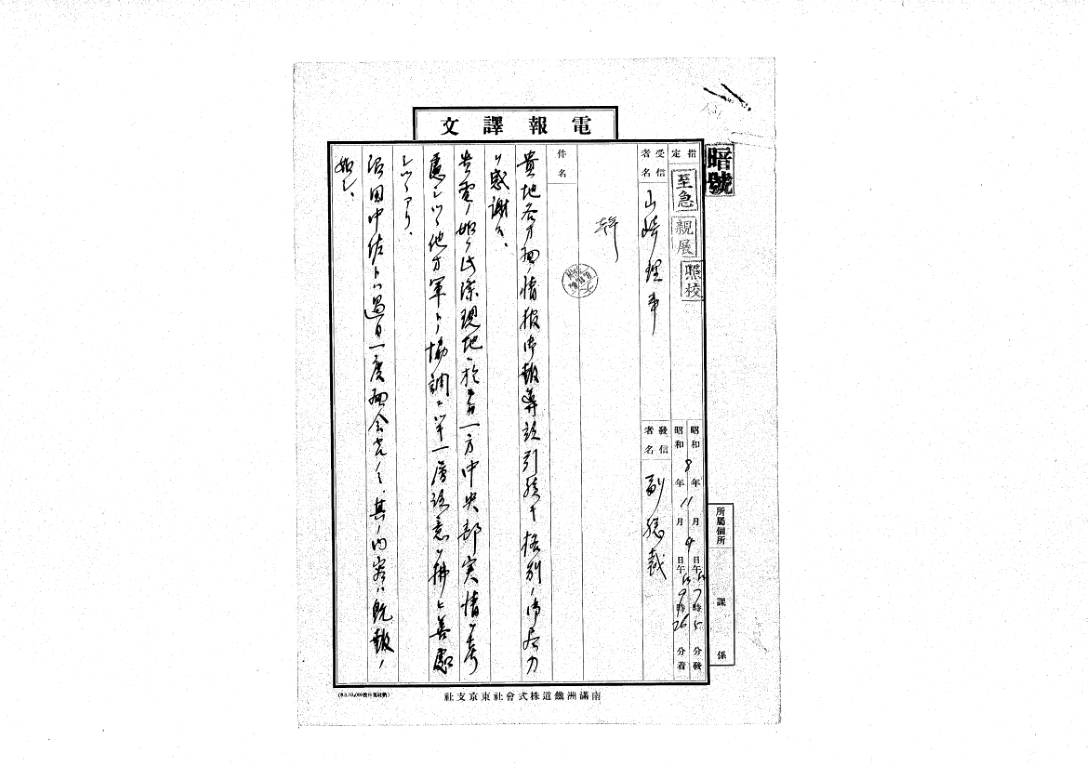 電報譯文
暗號
指定
至急
親展
照校
昭和8年11月9日午后7時5分發
昭和 年 月 日午后9時26分着
受信者名
山崎理事
發信者名
副總裁
件名
貴地各方面ノ情報御報導並引続キ格別ノ御尽力
ヲ感謝ス、
貴電ノ如ク此際現地ニ於テモ一方中央部実情ヲ考
慮シツツ他方軍トノ協調ニ単一層注意ヲ拂ヒ善処
シツツアリ、
沼田中佐トハ過日一度面会セシモ、其ノ内容ハ既報ノ
如シ、
所屬個所
課
係
南滿洲鐵道株式會社東京支社